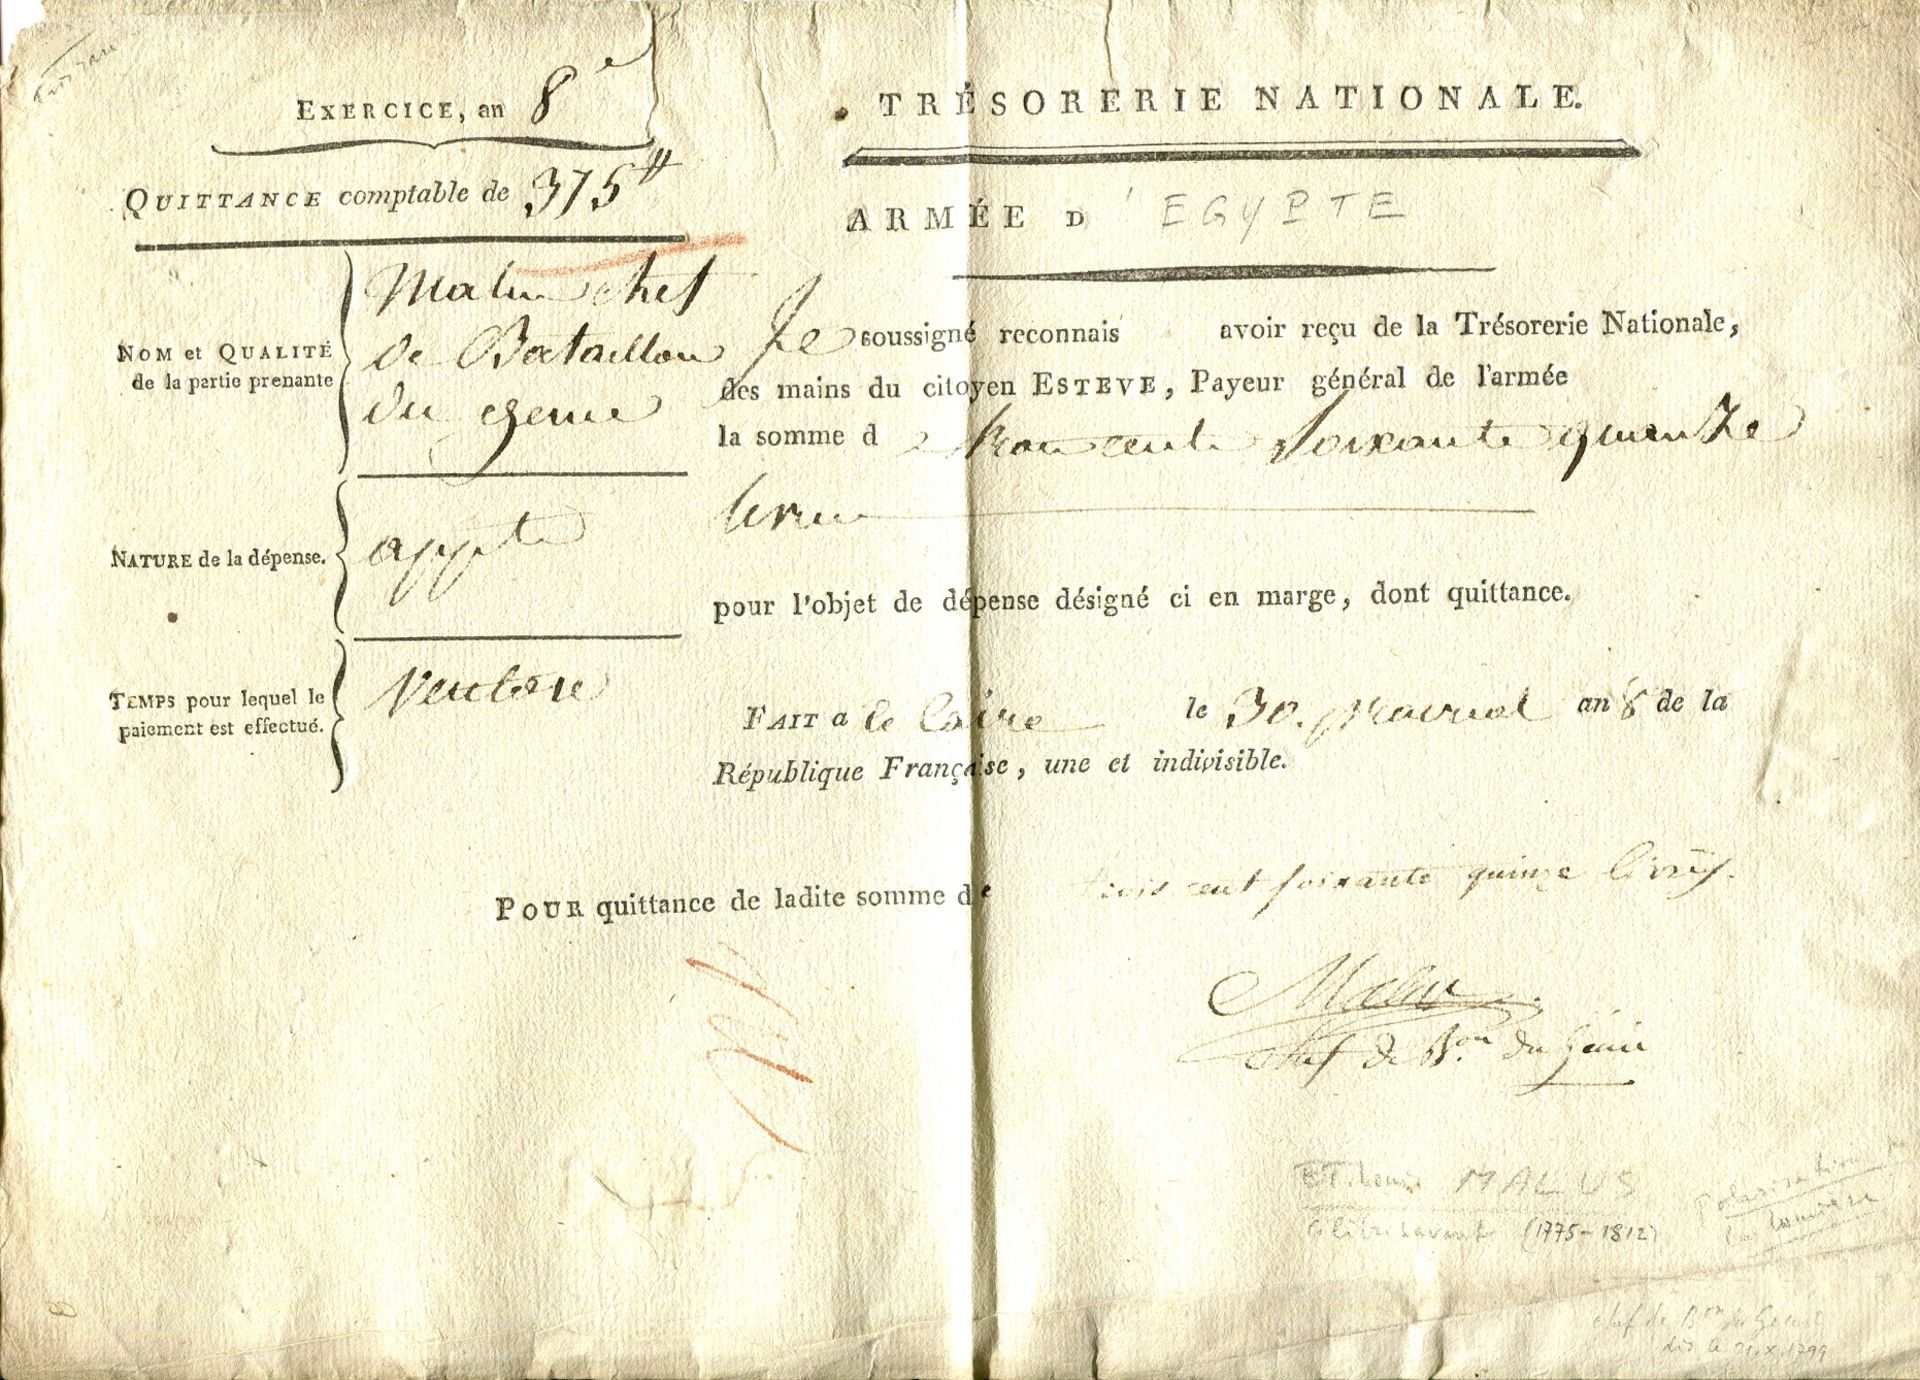 très rare
EXERCICE, an 8e
QUITTANCE comptable de 375#
NOM et QUALITÉ
de la partie prenante
Malus chef
de Bataillon
du genie
NATURE de la dépense.
appte
TEMPS pour lequel le
paiement est effectué.
Ventose
TRÉSORERIE NATIONALE.
ARMÉE D'EGYPTE
Je soussigné reconnais avoir reçu de la Trésorerie Nationale,
des mains du citoyen ESTEVE, Payeur général de l'armée
la somme de trois cents soixante quinze
livres
pour l'objet de dépense désigné ci en marge, dont quittance.
FAIT a le Caire le 30. prairial an 8 de la
République Française, une et indivisible.
POUR quittance de ladite somme de trois cent soixante quinze livres.
Malus
chef de Bon du Génie
ET. Louis MALUS
célèbre savant (1775-1812)
polarisation
la lumière
chef de Bon du Genie
dès le 21.X.1799